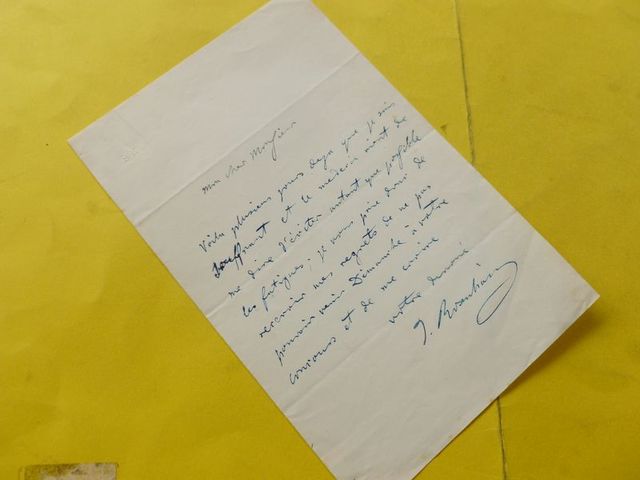 mon cher Monsieur
Voilà plusieurs jours déjà que je suis
souffrant et le médecin vient de
me dire d'éviter autant que possible
les fatigues ; je vous prie donc de
recevoir mes regrets de ne pas
pouvoir venir Dimanche à votre
concours et de me croire
votre dévoué
J. Rosenhain